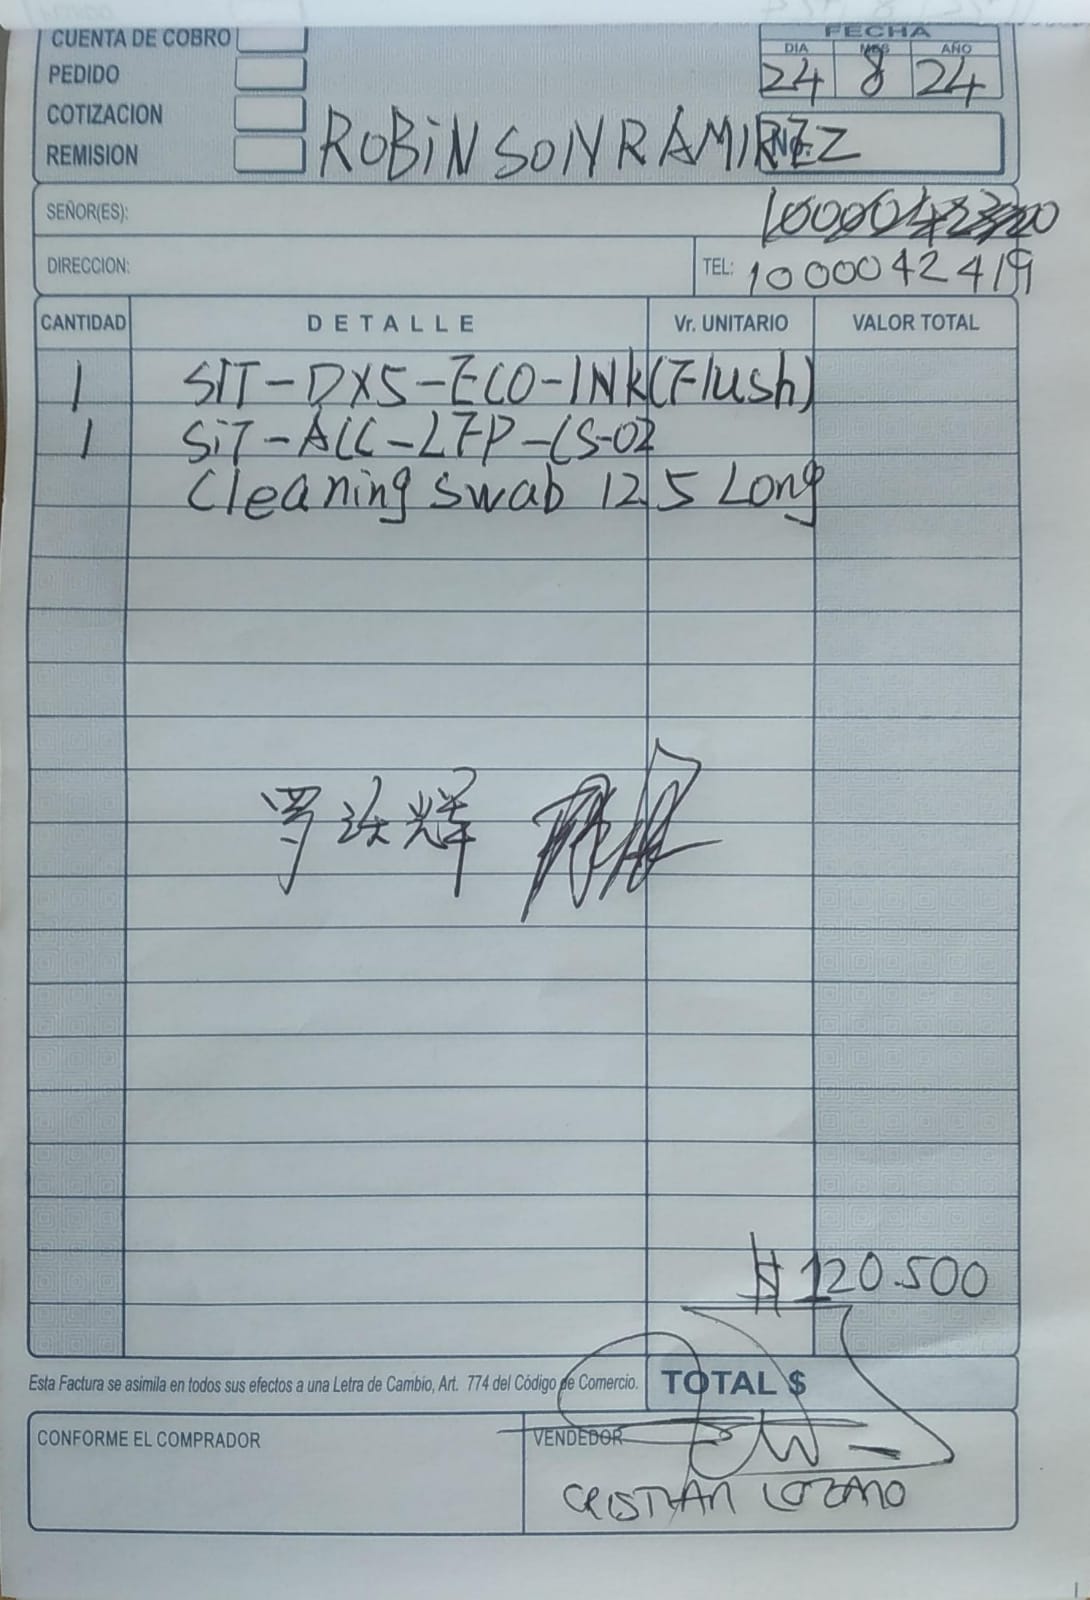 CUENTA DE COBRO
PEDIDO
COTIZACION
REMISION
FECHA
DIA MES AÑO
24 8 24
No.
ROBiNSON RAMIREZ
SEÑOR(ES):
DIRECCION:
TEL: 1000042419
CANTIDAD DETALLE Vr. UNITARIO VALOR TOTAL
1 SIT-DX5-ECO-INK(Flush)
1 SiT-ACC-LFP-CS-02
Cleaning swab 12.5 Long
罗 辉
$ 120.500
Esta Factura se asimila en todos sus efectos a una Letra de Cambio, Art. 774 del Código de Comercio.
TOTAL $
CONFORME EL COMPRADOR
VENDEDOR
CRISTIAN LOZANO